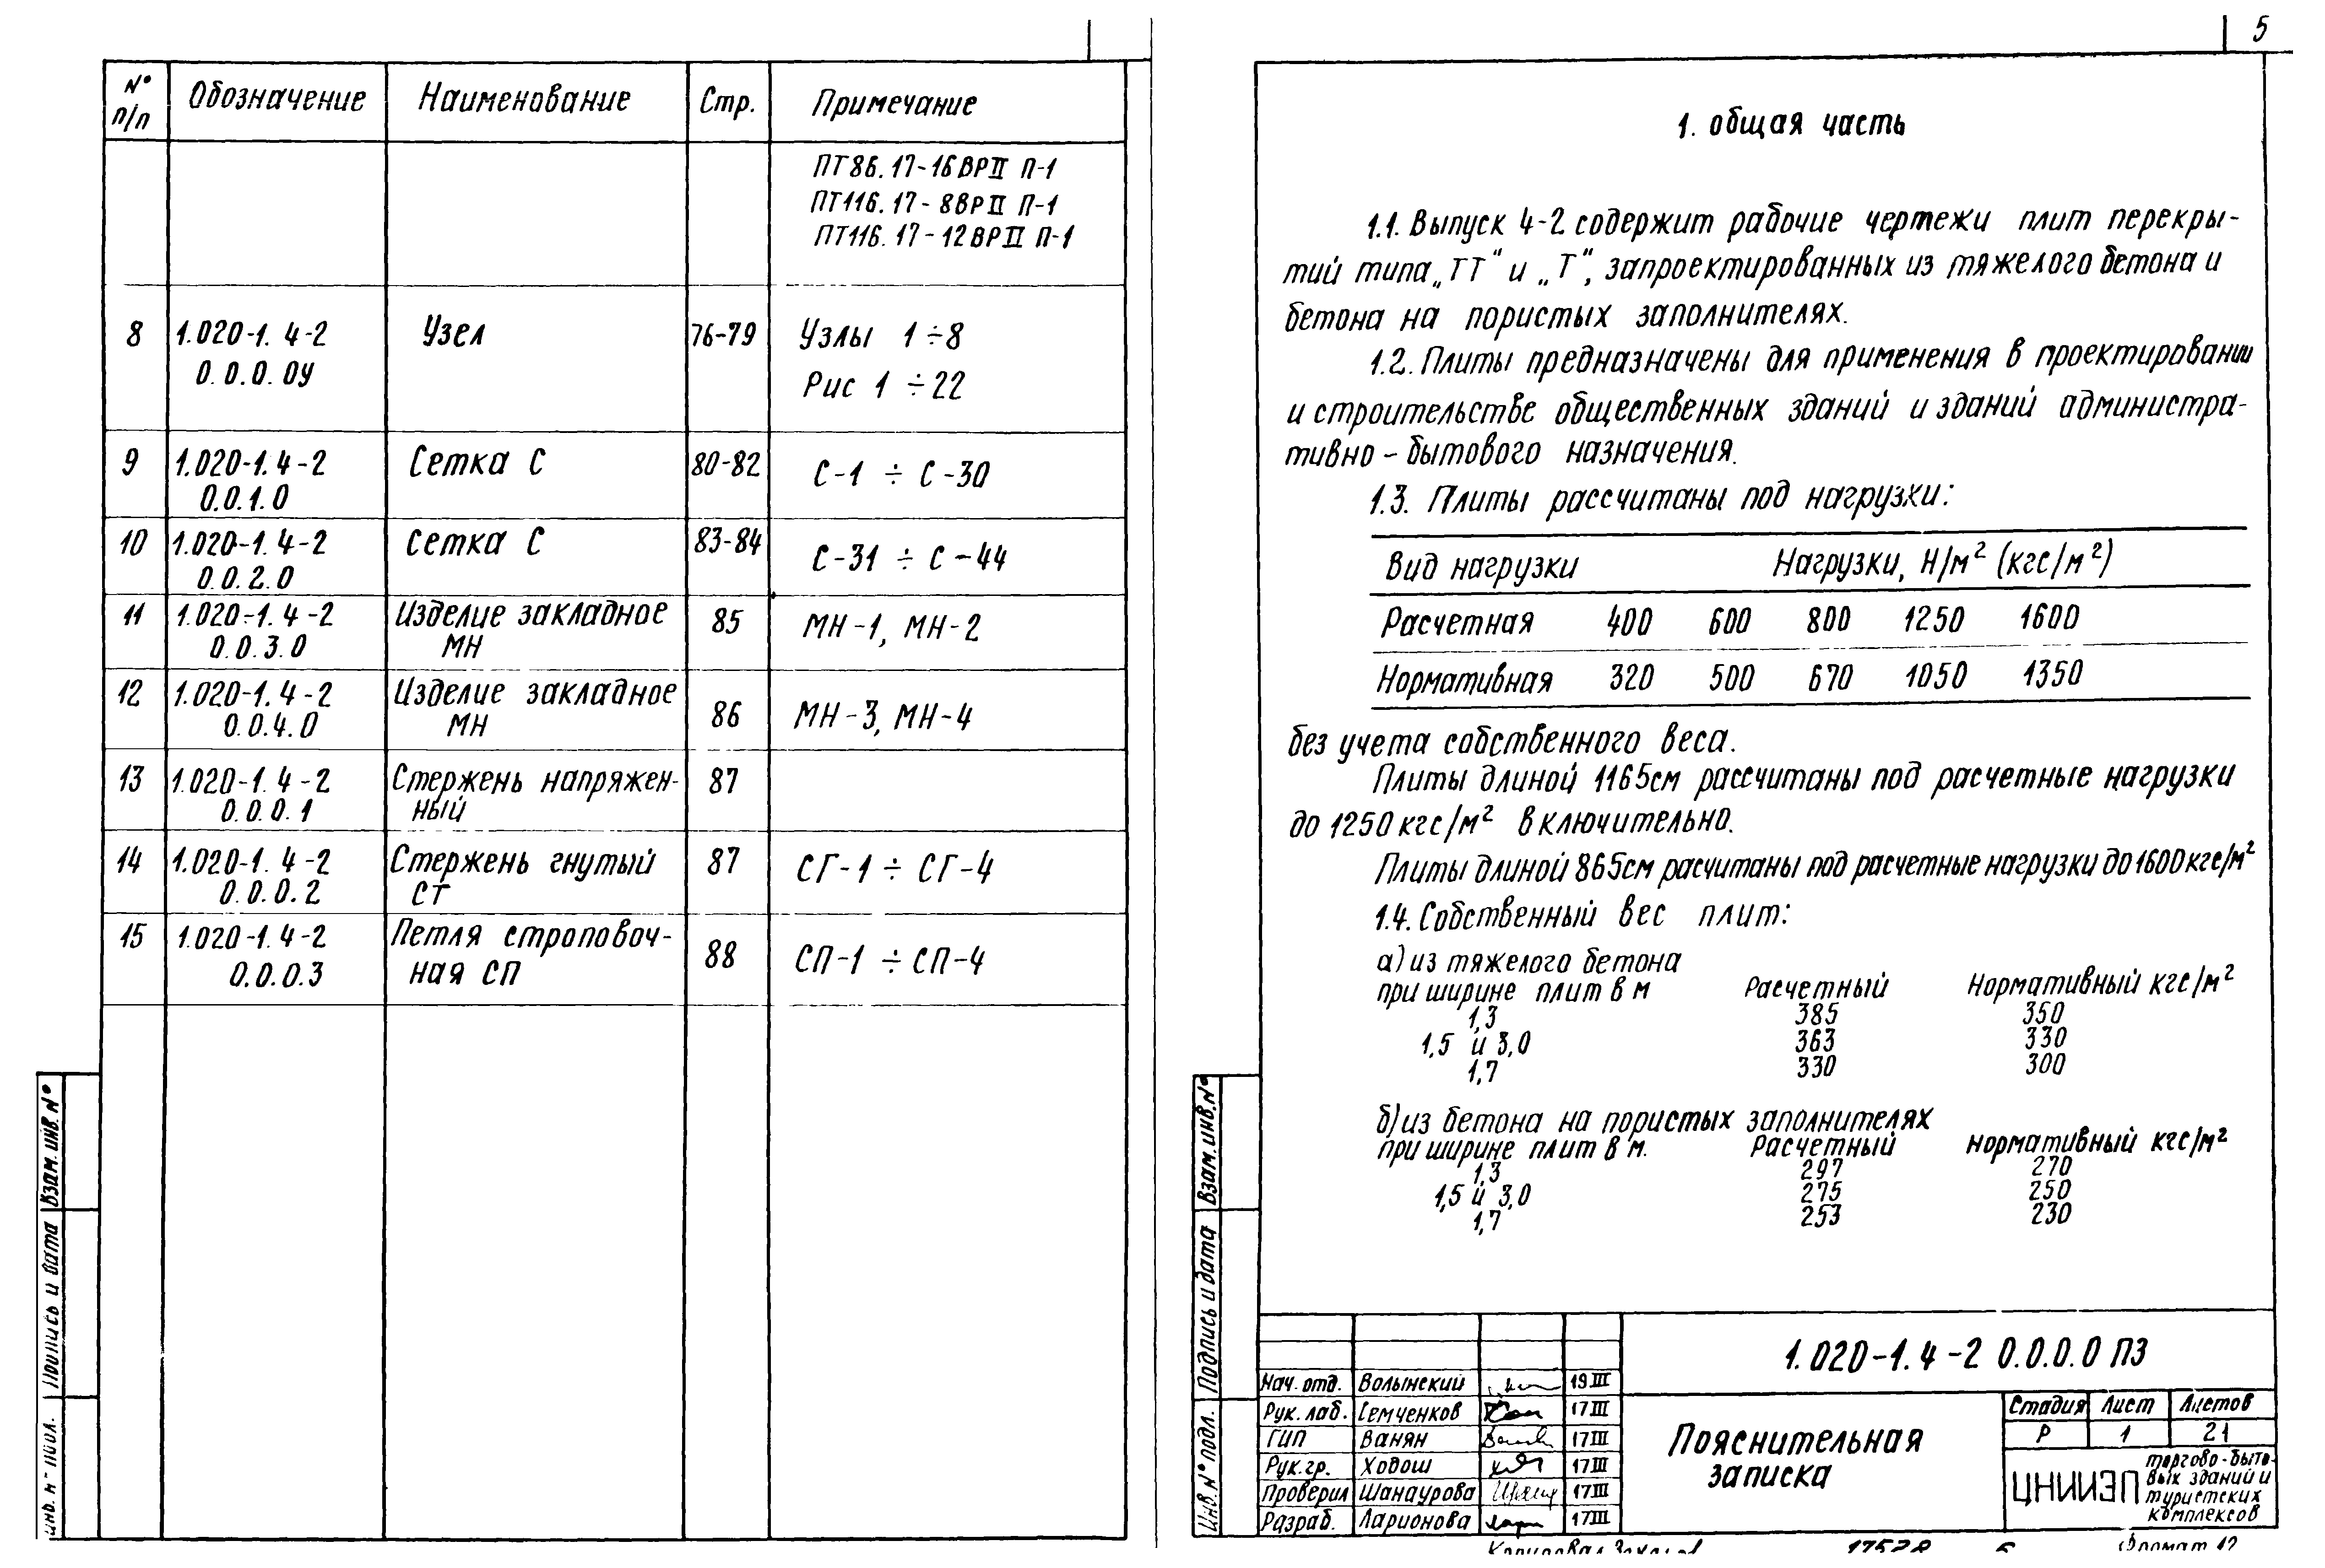 № п/п Обозначение Наименование Стр. Примечание
ПТ86.17-16ВРII П-1
ПТ116.17-8ВРII П-1
ПТ116.17-12ВРII П-1
8 1.020-1.4-2 Узел 76-79 Узлы 1÷8
0.0.0.0У Рис 1÷22
9 1.020-1.4-2 Сетка С 80-82 С-1 ÷ С-30
0.0.1.0
10 1.020-1.4-2 Сетка С 83-84 С-31 ÷ С-44
0.0.2.0
11 1.020-1.4-2 Изделие закладное 85 МН-1, МН-2
0.0.3.0 МН
12 1.020-1.4-2 Изделие закладное 86 МН-3, МН-4
0.0.4.0 МН
13 1.020-1.4-2 Стержень напряжен- 87
0.0.0.1 ный
14 1.020-1.4-2 Стержень гнутый 87 СГ-1 ÷ СГ-4
0.0.0.2 СТ
15 1.020-1.4-2 Петля строповоч- 88 СП-1 ÷ СП-4
0.0.0.3 ная СП
Взам. инв. №
Подпись и дата
Инв. № подл.
5
1. общая часть
1.1. Выпуск 4-2 содержит рабочие чертежи плит перекры-
тий типа „ТТ“ и „Т“, запроектированных из тяжелого бетона и
бетона на пористых заполнителях.
1.2. Плиты предназначены для применения в проектировании
и строительстве общественных зданий и зданий администра-
тивно-бытового назначения.
1.3. Плиты рассчитаны под нагрузки:
Вид нагрузки Нагрузки, Н/м² (кгс/м²)
Расчетная 400 600 800 1250 1600
Нормативная 320 500 670 1050 1350
без учета собственного веса.
Плиты длиной 1165см рассчитаны под расчетные нагрузки
до 1250 кгс/м² включительно.
Плиты длиной 865см расчитаны под расчетные нагрузки до 1600кгс/м²
1.4. Собственный вес плит:
а) из тяжелого бетона
при ширине плит в м Расчетный Нормативный кгс/м²
1,3 385 350
1,5 и 3,0 363 330
1,7 330 300
б) из бетона на пористых заполнителях
при ширине плит в м. Расчетный нормативный кгс/м²
1,3 297 270
1,5 и 3,0 275 250
1,7 253 230
Взам. инв. №
Подпись и дата
Инв. № подл.
1.020-1.4-2 0.0.0.0 ПЗ
Нач. отд. Волынский 19 III
Рук. лаб. Семченков 17 III
ГИП Ванян 17 III
Рук. гр. Ходош 17 III
Проверил Шанаурова 17 III
Разраб. Ларионова 17 III
Пояснительная
записка
Стадия Лист Листов
Р 1 21
ЦНИИЭП торгово-быто-
вых зданий и
туристских
комплексов
17528
Формат 12